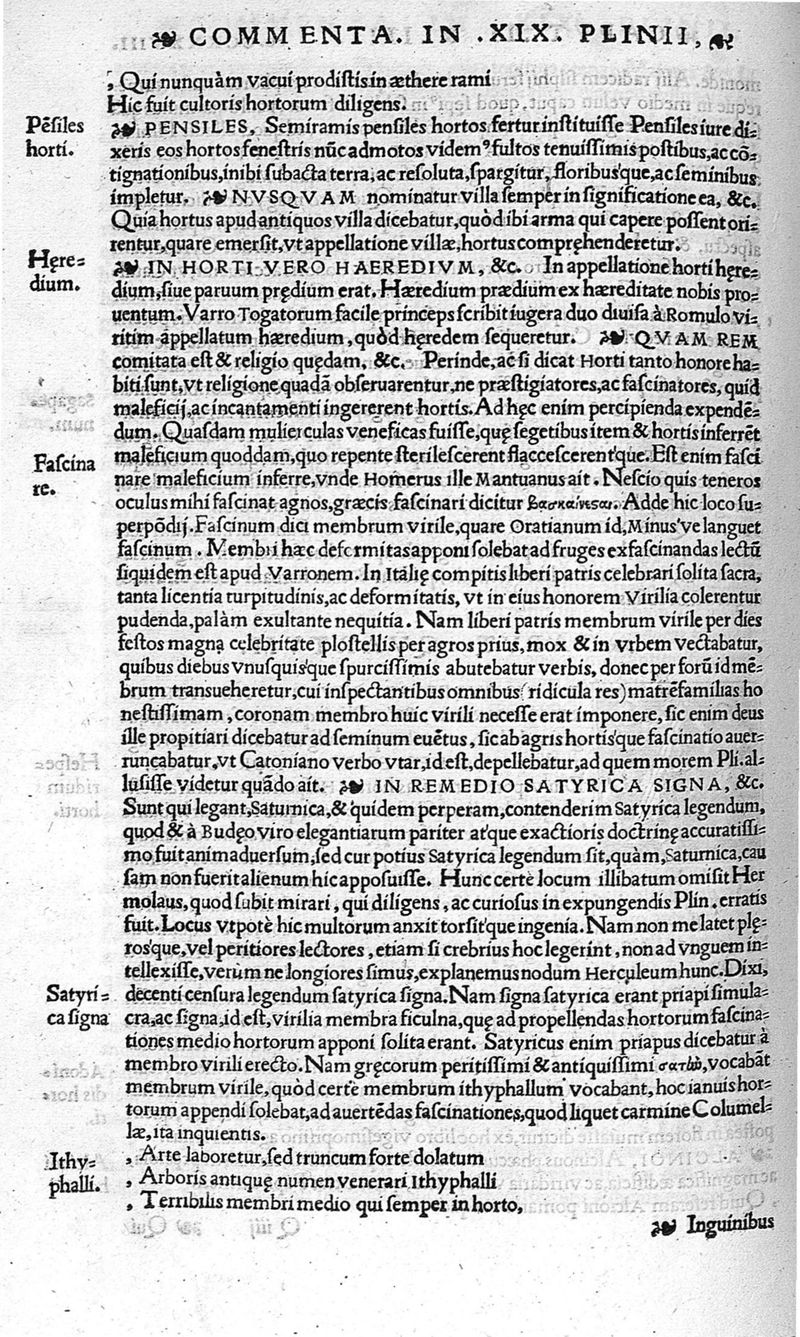 COMMENTA. IN .XIX. PLINII,
, Qui nunquàm vacui prodistis in æthere rami
Hic fuit cultoris hortorum diligens.
Pẽsiles
horti.
PENSILES, Semiramis pensiles hortos fertur instituisse Pensiles iure di-
xeris eos hortos fenestris nũc admotos videmꝰ fultos tenuissimis postibus, ac cõ-
tignationibus, inibi subacta terra, ac resoluta, spargitur, floribus'que, ac seminibus
impletur. NVSQVAM nominatur villa semper in significatione ea, &c.
Quia hortus apud antiquos villa dicebatur, quòd ibi arma qui capere possent ori-
rentur, quare emersit, vt appellatione villæ, hortus comprehenderetur.
Hęre-
dium.
IN HORTI VERO HAEREDIVM, &c. In appellatione horti hęre-
dium, siue paruum prędium erat. Hæredium prædium ex hæreditate nobis pro-
uentum. Varro Togatorum facile princeps scribit iugera duo diuisa à Romulo vi-
ritim appellatum hæredium, quòd hęredem sequeretur. QVAM REM
comitata est & religio quędam, &c. Perinde, ac si dicat Horti tanto honore ha-
biti sunt, vt religione quadã obseruarentur, ne præstigiatores, ac fascinatores, quid
maleficij, ac incantamenti ingererent hortis. Ad hęc enim percipienda expendẽ-
dum. Quasdam mulierculas veneficas fuisse, quę segetibus item & hortis inferrẽt
maleficium quoddam, quo repente sterilescerent flaccescerent'que. Est enim fasci
Fascina
re.
nare maleficium inferre, vnde Homerus ille Mantuanus ait. Nescio quis teneros
oculus mihi fascinat agnos, græcis fascinari dicitur βασκαίνεσαι. Adde hic loco su-
perpõdij. Fascinum dici membrum virile, quare Oratianum id, Minus've languet
fascinum. Membri hæc deformitas apponi solebat ad fruges exfascinandas lectũ
siquidem est apud Varronem. In Italię compitis liberi patris celebrari solita sacra,
tanta licentia turpitudinis, ac deformitatis, vt in eius honorem Virilia colerentur
pudenda, palàm exultante nequitia. Nam liberi patris membrum virile per dies
festos magna celebritate plostellis per agros prius, mox & in vrbem vectabatur,
quibus diebus vnusquis'que spurcissimis abutebatur verbis, donec per forũ id mẽ-
brum transueheretur, cui inspectantibus omnibus (ridicula res) matrẽfamilias ho
nestissimam, coronam membro huic virili necesse erat imponere, sic enim deus
ille propitiari dicebatur ad seminum euẽtus, sic ab agris hortis'que fascinatio auer-
runcabatur, vt Catoniano verbo vtar, id est, depellebatur, ad quem morem Pli. al-
lusisse videtur quãdo ait. IN REMEDIO SATYRICA SIGNA, &c.
Sunt qui legant, Saturnica, & quidem perperam, contenderim Satyrica legendum,
quod & à Budęo viro elegantiarum pariter at'que exactioris doctrinę accuratissi-
mo fuit animaduersum, sed cur potius Satyrica legendum sit, quàm, Saturnica, cau
sam non fuerit alienum hic apposuisse. Hunc certè locum illibatum omisit Her
molaus, quod subit mirari, qui diligens, ac curiosus in expungendis Plin. erratis
fuit. Locus vtpotè hic multorum anxit torsit'que ingenia. Nam non me latet plę-
ros'que, vel peritiores lectores, etiam si crebrius hoc legerint, non ad vnguem in-
tellexisse, verùm ne longiores simus, explanemus nodum Herculeum hunc. Dixi,
Satyri-
ca signa
decenti censura legendum satyrica signa. Nam signa satyrica erant priapi simula-
cra, ac signa, id est, virilia membra ficulna, quę ad propellendas hortorum fascina-
tiones medio hortorum apponi solita erant. Satyricus enim priapus dicebatur à
membro virili erecto. Nam gręcorum peritissimi & antiquissimi σατὴν, vocabãt
membrum virile, quòd certè membrum ithyphallum vocabant, hoc ianuis hor-
torum appendi solebat, ad auertẽdas fascinationes, quod liquet carmine Columel-
læ, ita inquientis.
, Arte laboretur, sed truncum forte dolatum
Ithy-
phalli.
, Arboris antiquę numen venerari Ithyphalli
, Terribilis membri medio qui semper in horto,
Inguinibus